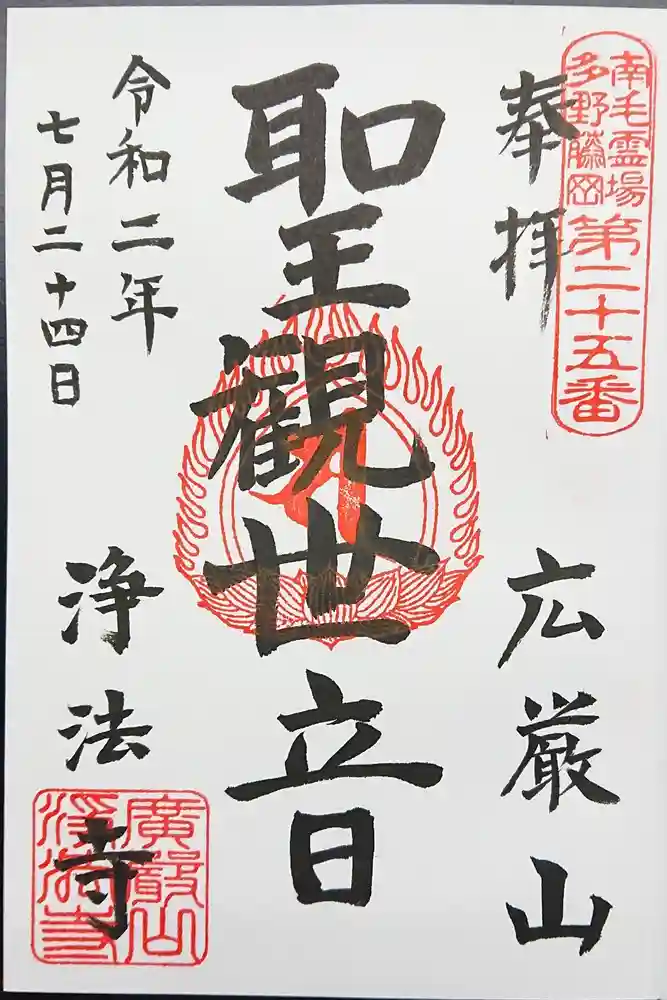 南毛霊場
多野藤岡
第二十五番
奉拝
広厳山
聖観世音
令和二年
七月二十四日
浄法寺
廣嚴山
浄法寺